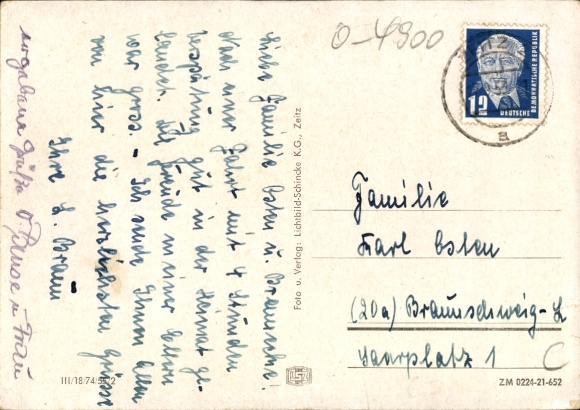 Liebe Familie Osten u. Braunsche.
Nach einer Fahrt mit 4 Stunden
Verspätung gut in der Heimat ge-
landet. Die Freude meiner Eltern
war gross. - Ich sende Ihnen allen
von hier die herzlichsten Grüsse
Ihre L. Braun
Grüße
u. Frau
Foto u. Verlag: Lichtbild-Schincke K.G., Zeitz
III/18/74/5852
0-4900
ZEITZ
a
12
DEUTSCHE
DEMOKRATISCHE REPUBLIK
Familie
Karl Osten
(20a) Braunschweig-L
Saarplatz 1
C
ZM 0224-21-652